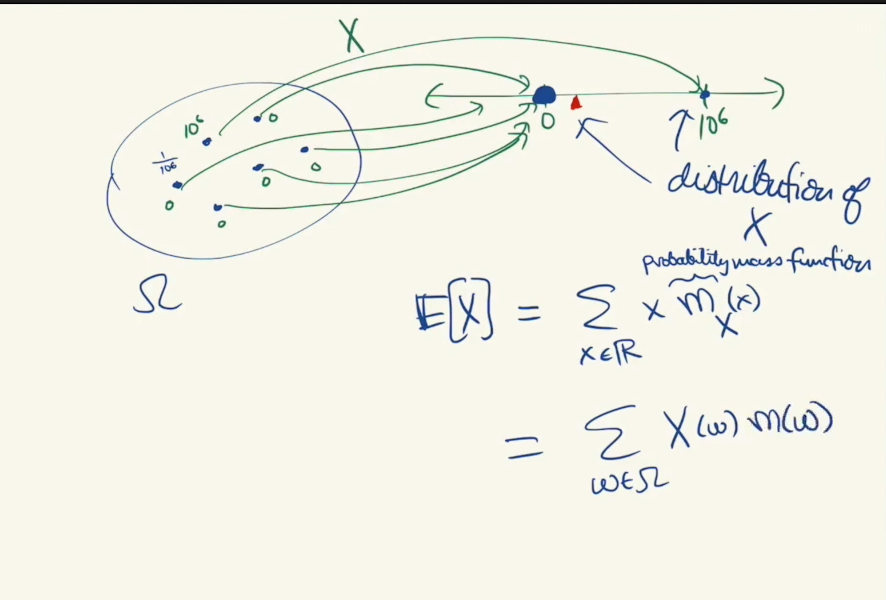 X
10⁶ 0
1/10⁶
0 0
0
0
0 10⁶
distribution of
X
probability mass function
Ω
E[X] = Σ x m_X(x)
x∈ℝ
= Σ X(ω) m(ω)
ω∈Ω